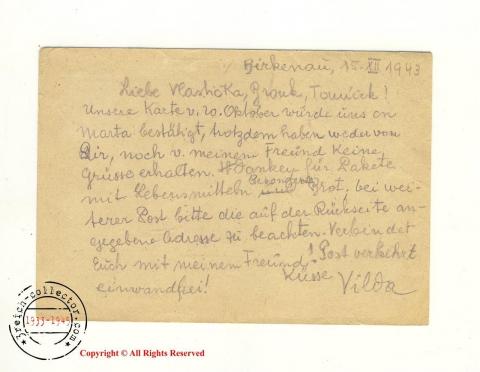 Birkenau, 15-XII 1943
Liebe Vlastička, Broňk, Tomíček!
Unsere Karte v. 20. Oktober würde uns on
Marta bestätigt, trotzdem haben weder von
Dir, noch v. meinem Freund Keine
Grüsse erhalten. Danken für Pakete
mit Lebensmitteln Besonders Brot, bei wei-
terer Post bitte die auf der Rückseite an-
gegebene Adresse zu beachten. Verbindet
Euch mit meinem Freund! Post verkehrt
einwandfrei! Küsse Vilda
3reich-collector.com
1933-1945
Copyright © All Rights Reserved